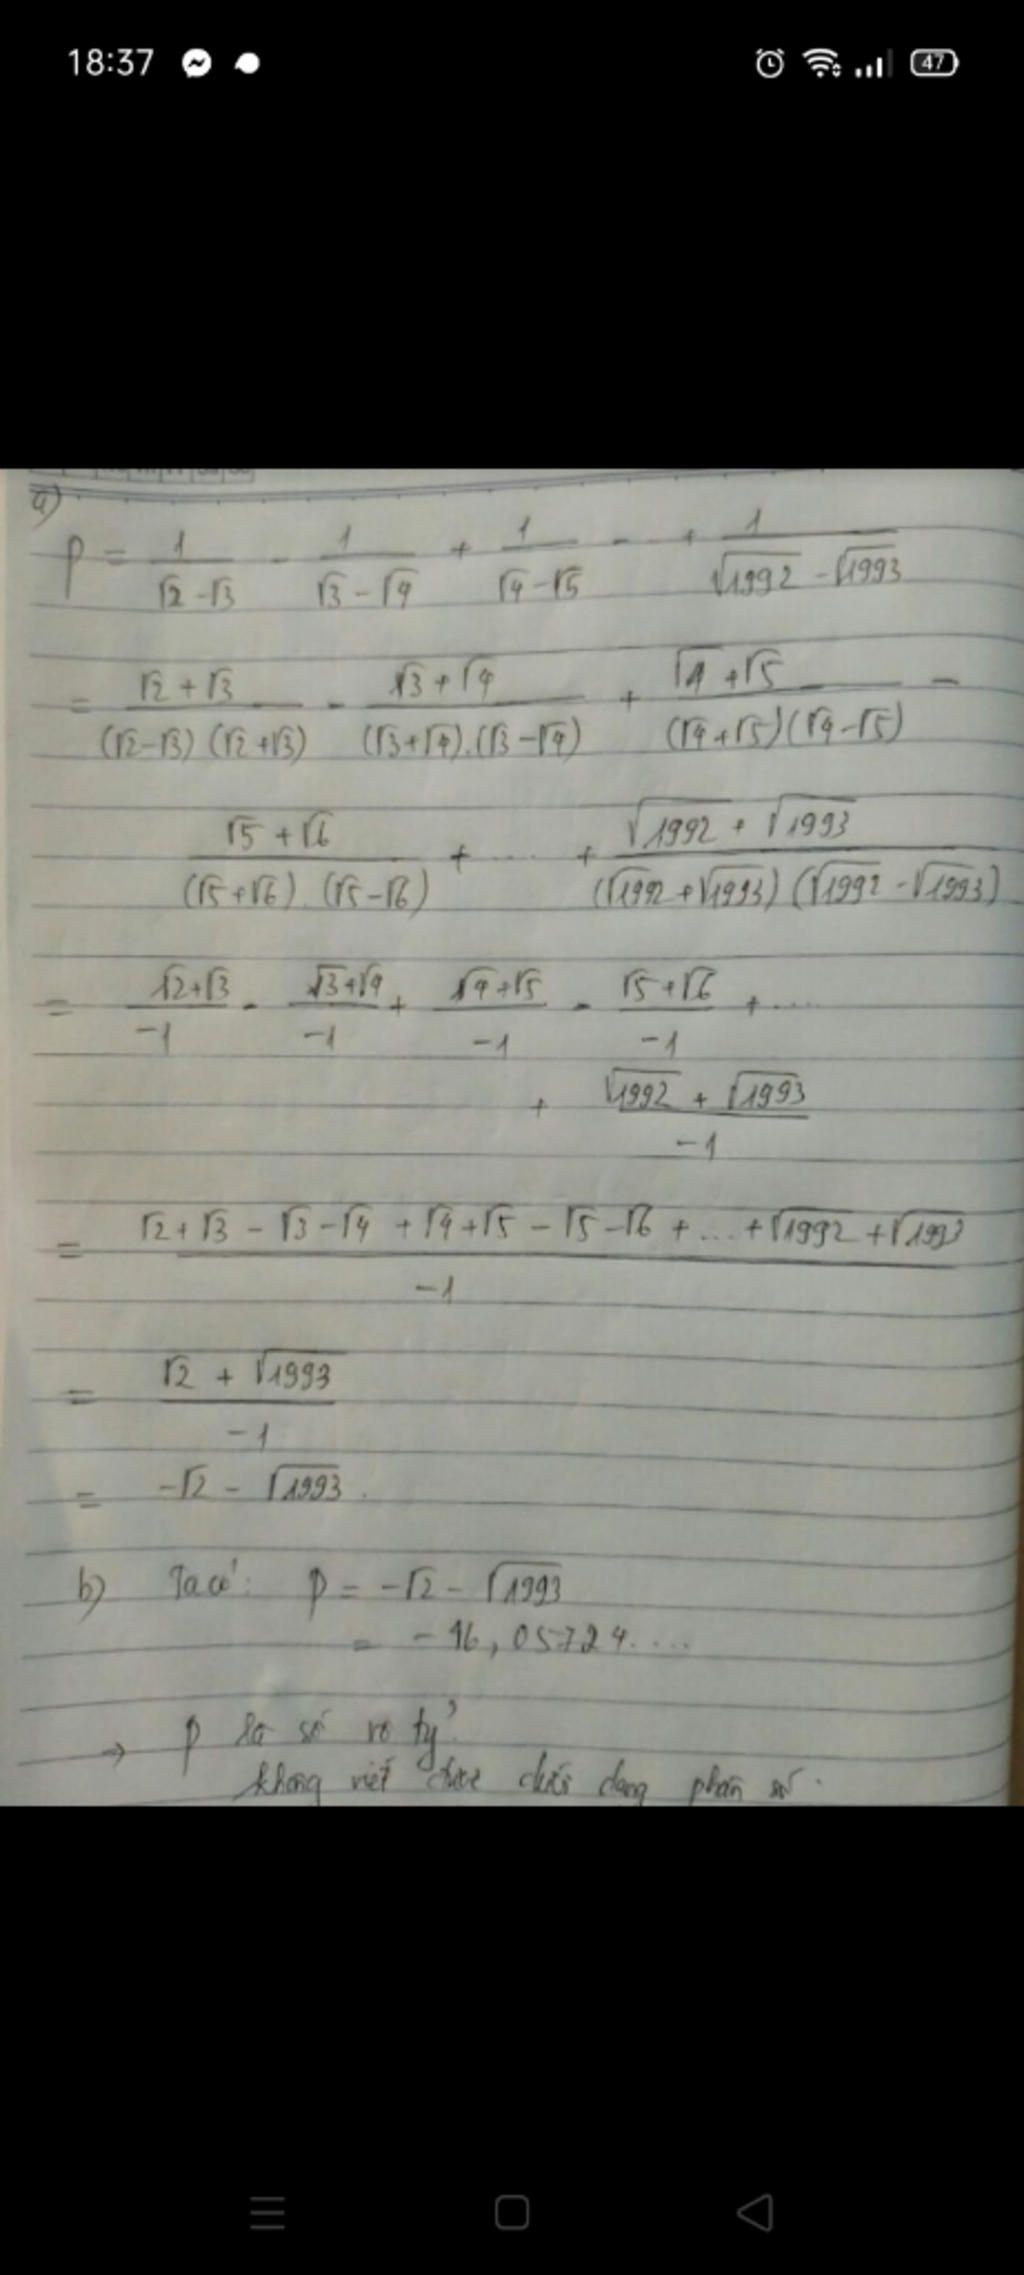 18:37 47
a)
P = 1/(√2 - √3) - 1/(√3 - √4) + 1/(√4 - √5) - .. + 1/(√1992 - √1993)
= (√2 + √3)/((√2-√3) (√2+√3)) - (√3 + √4)/((√3+√4).(√3-√4)) + (√4 + √5)/((√4+√5)(√4-√5)) -
(√5 + √6)/((√5+√6) . (√5-√6)) + .... + (√1992 + √1993)/((√1992 + √1993) (√1992 - √1993))
= (√2+√3)/-1 - (√3+√4)/-1 + (√4+√5)/-1 - (√5+√6)/-1 + ....
+ (√1992 + √1993)/-1
= (√2 + √3 - √3 - √4 + √4 + √5 - √5 - √6 + ... + √1992 + √1993)/-1
= (√2 + √1993)/-1
= -√2 - √1993.
b) Ta có: P = -√2 - √1993
= - 46,05724....
→ P là số vô tỷ
không viết được dưới dạng phân số.